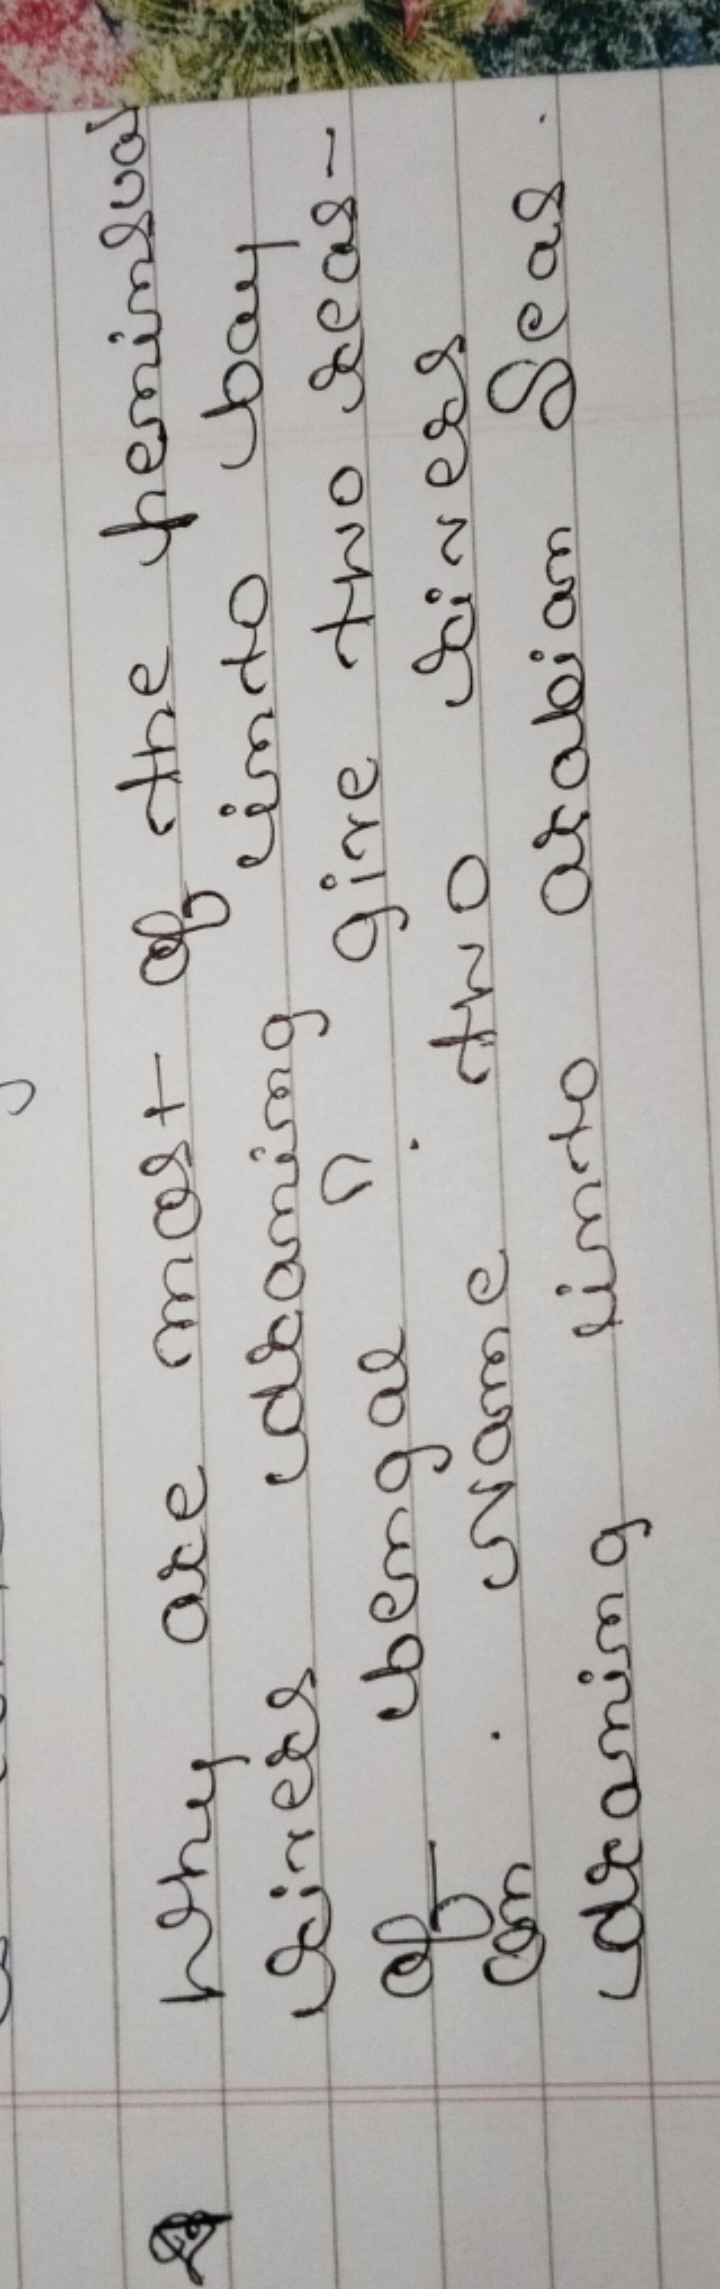 Why are most of the peninsular
rivers draining into bay
of bengal ? give two reas-
on . Name . two rivers
draining into arabian Seas .